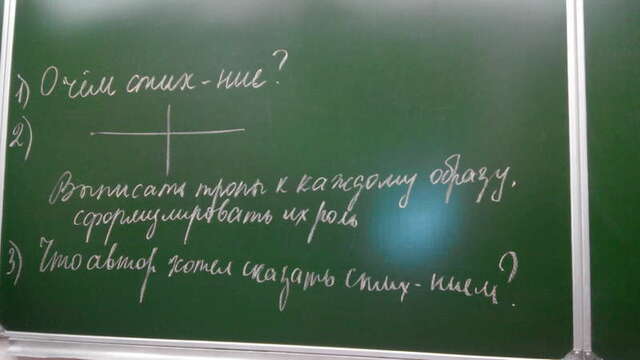 1) О чём стих-ние?
2)
Выписать тропы к каждому образу.
сформулировать их роль
3) Что автор хотел сказать стих-нием?